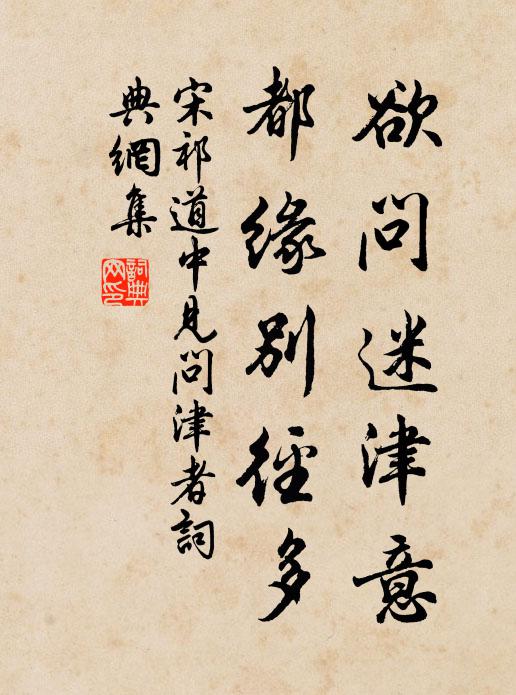 欲問迷津意
都緣別徑多
宋祁道中見問津者詞
典網集
詞典
网印